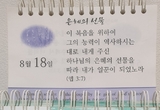 은혜의 선물
8월 18일
이 복음을 위하여
그의 능력이 역사하시는
대로 내게 주신
하나님의 은혜의 선물을
따라 내가 일꾼이 되었노라
(엡 3:7)